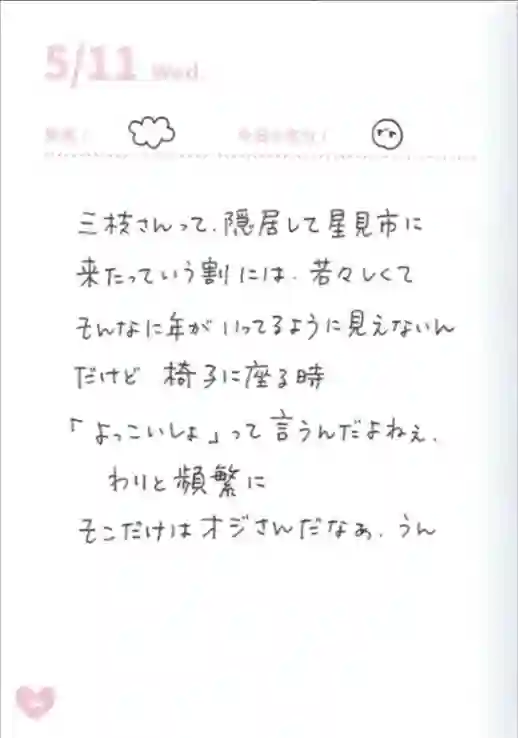 5/11 Wed.
三枝さんって、隠居して星見市に
来たっていう割には、若々しくて
そんなに年がいってるように見えないん
だけど 椅子に座る時
「よっこいしょ」って言うんだよねぇ、
わりと頻繁に
そこだけはオジさんだなぁ、うん